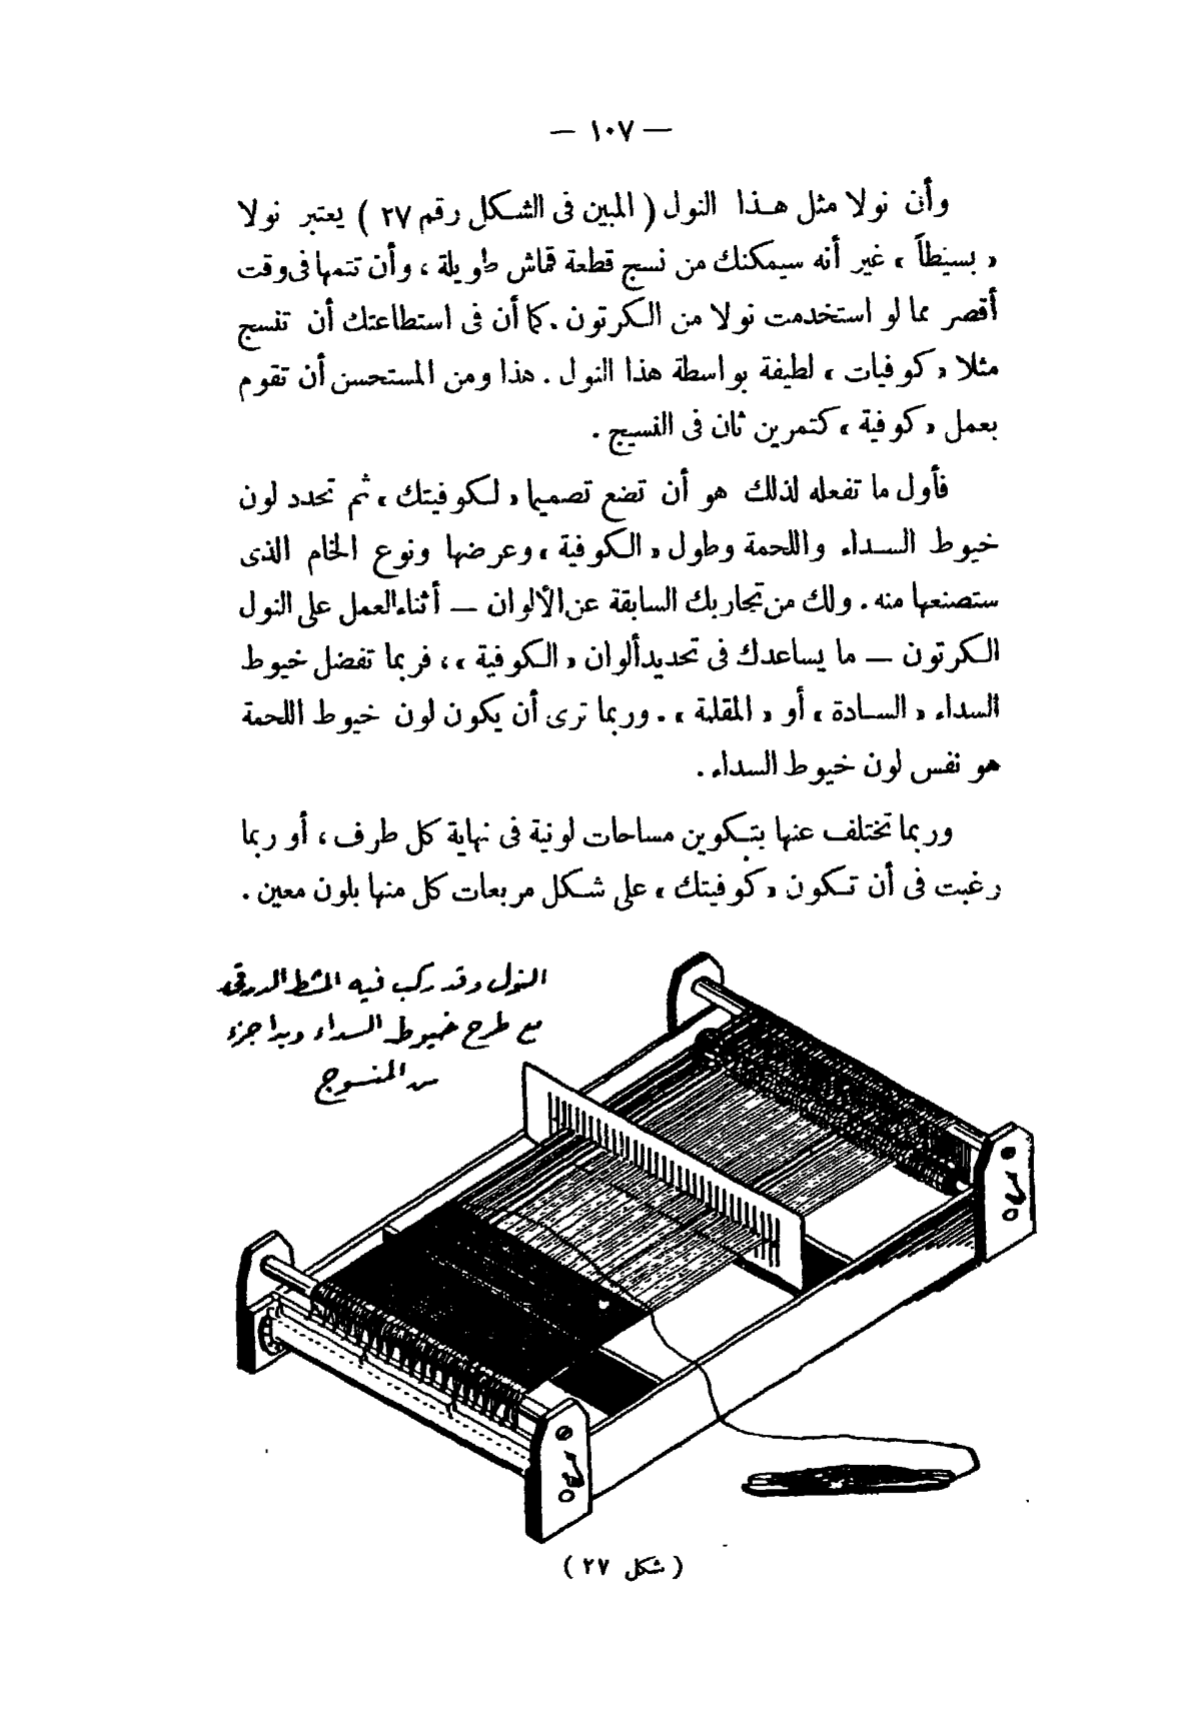 — ١٠٧ —
وأن نولا مثل هذا النول ( المبين فى الشكل رقم ٢٧ ) يعتبر نولا
« بسيطاً » غير أنه سيمكنك من نسج قطعة قماش طويلة ، وأن تتمها فى وقت
أقصر مما لو استخدمت نولا من الكرتون . كما أن فى استطاعتك أن تنسج
مثلا « كوفيات » لطيفة بواسطة هذا النول . هذا ومن المستحسن أن تقوم
بعمل « كوفية » كتمرين ثان فى النسيج .
فأول ما تفعله لذلك هو أن تضع تصميما « لكوفيتك » ثم تحدد لون
خيوط السداء واللحمة وطول « الكوفية » وعرضها ونوع الخام الذى
ستصنعها منه . ولك من تجاربك السابقة عن الألوان — أثناء العمل على النول
الكرتون — ما يساعدك فى تحديد ألوان « الكوفية » ، فربما تفضل خيوط
السداء « السادة » أو « المقلمة » . وربما ترى أن يكون لون خيوط اللحمة
هو نفس لون خيوط السداء .
وربما تختلف عنها بتكوين مساحات لونية فى نهاية كل طرف ، أو ربما
رغبت فى أن تكون « كوفيتك » على شكل مربعات كل منها بلون معين .
النول وقد ركب فيه المشط
مع طرح خيوط السداء وبدا جزء
من المنسوج
( شكل ٢٧ )